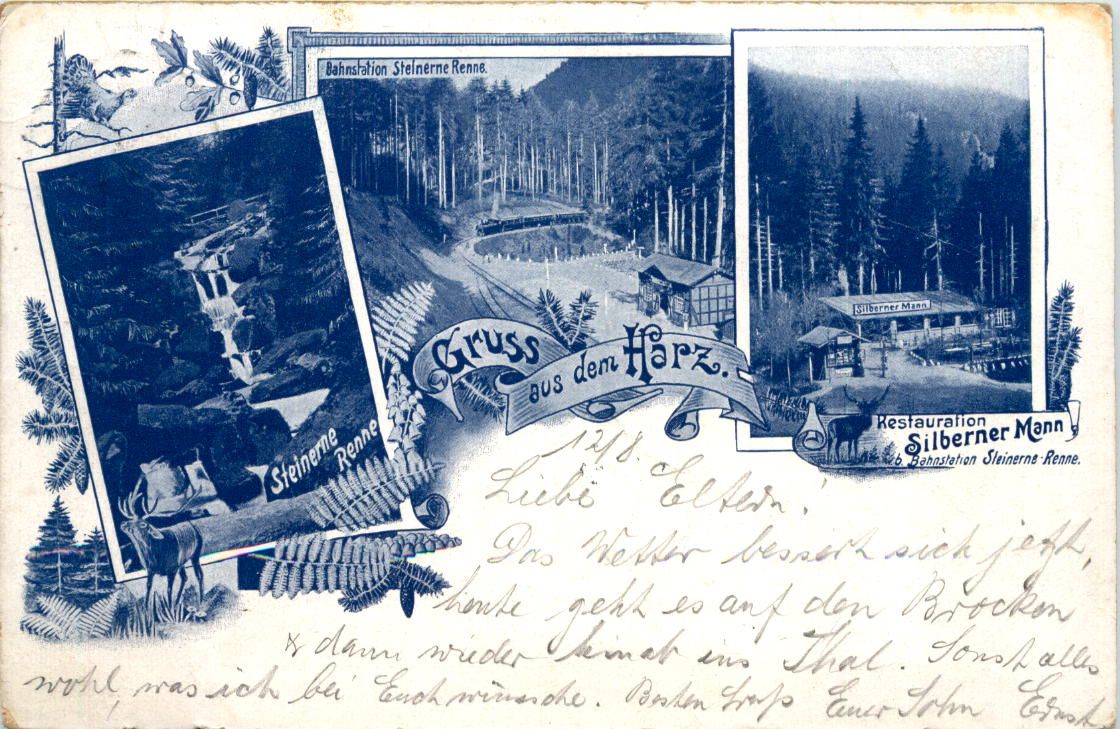 Bahnstation Steinerne Renne.
Steinerne
Renne
Silberner Mann
Gruss
aus dem Harz.
Restauration
Silberner Mann
b. Bahnstation Steinerne-Renne.
12/8.
Liebe Eltern!
Das Wetter bessert sich jetzt,
heute geht es auf den Brocken
& dann wieder hinab ins Thal. Sonst alles
wohl, was ich bei Euch wünsche. Besten Gruß Euer Sohn Ernst